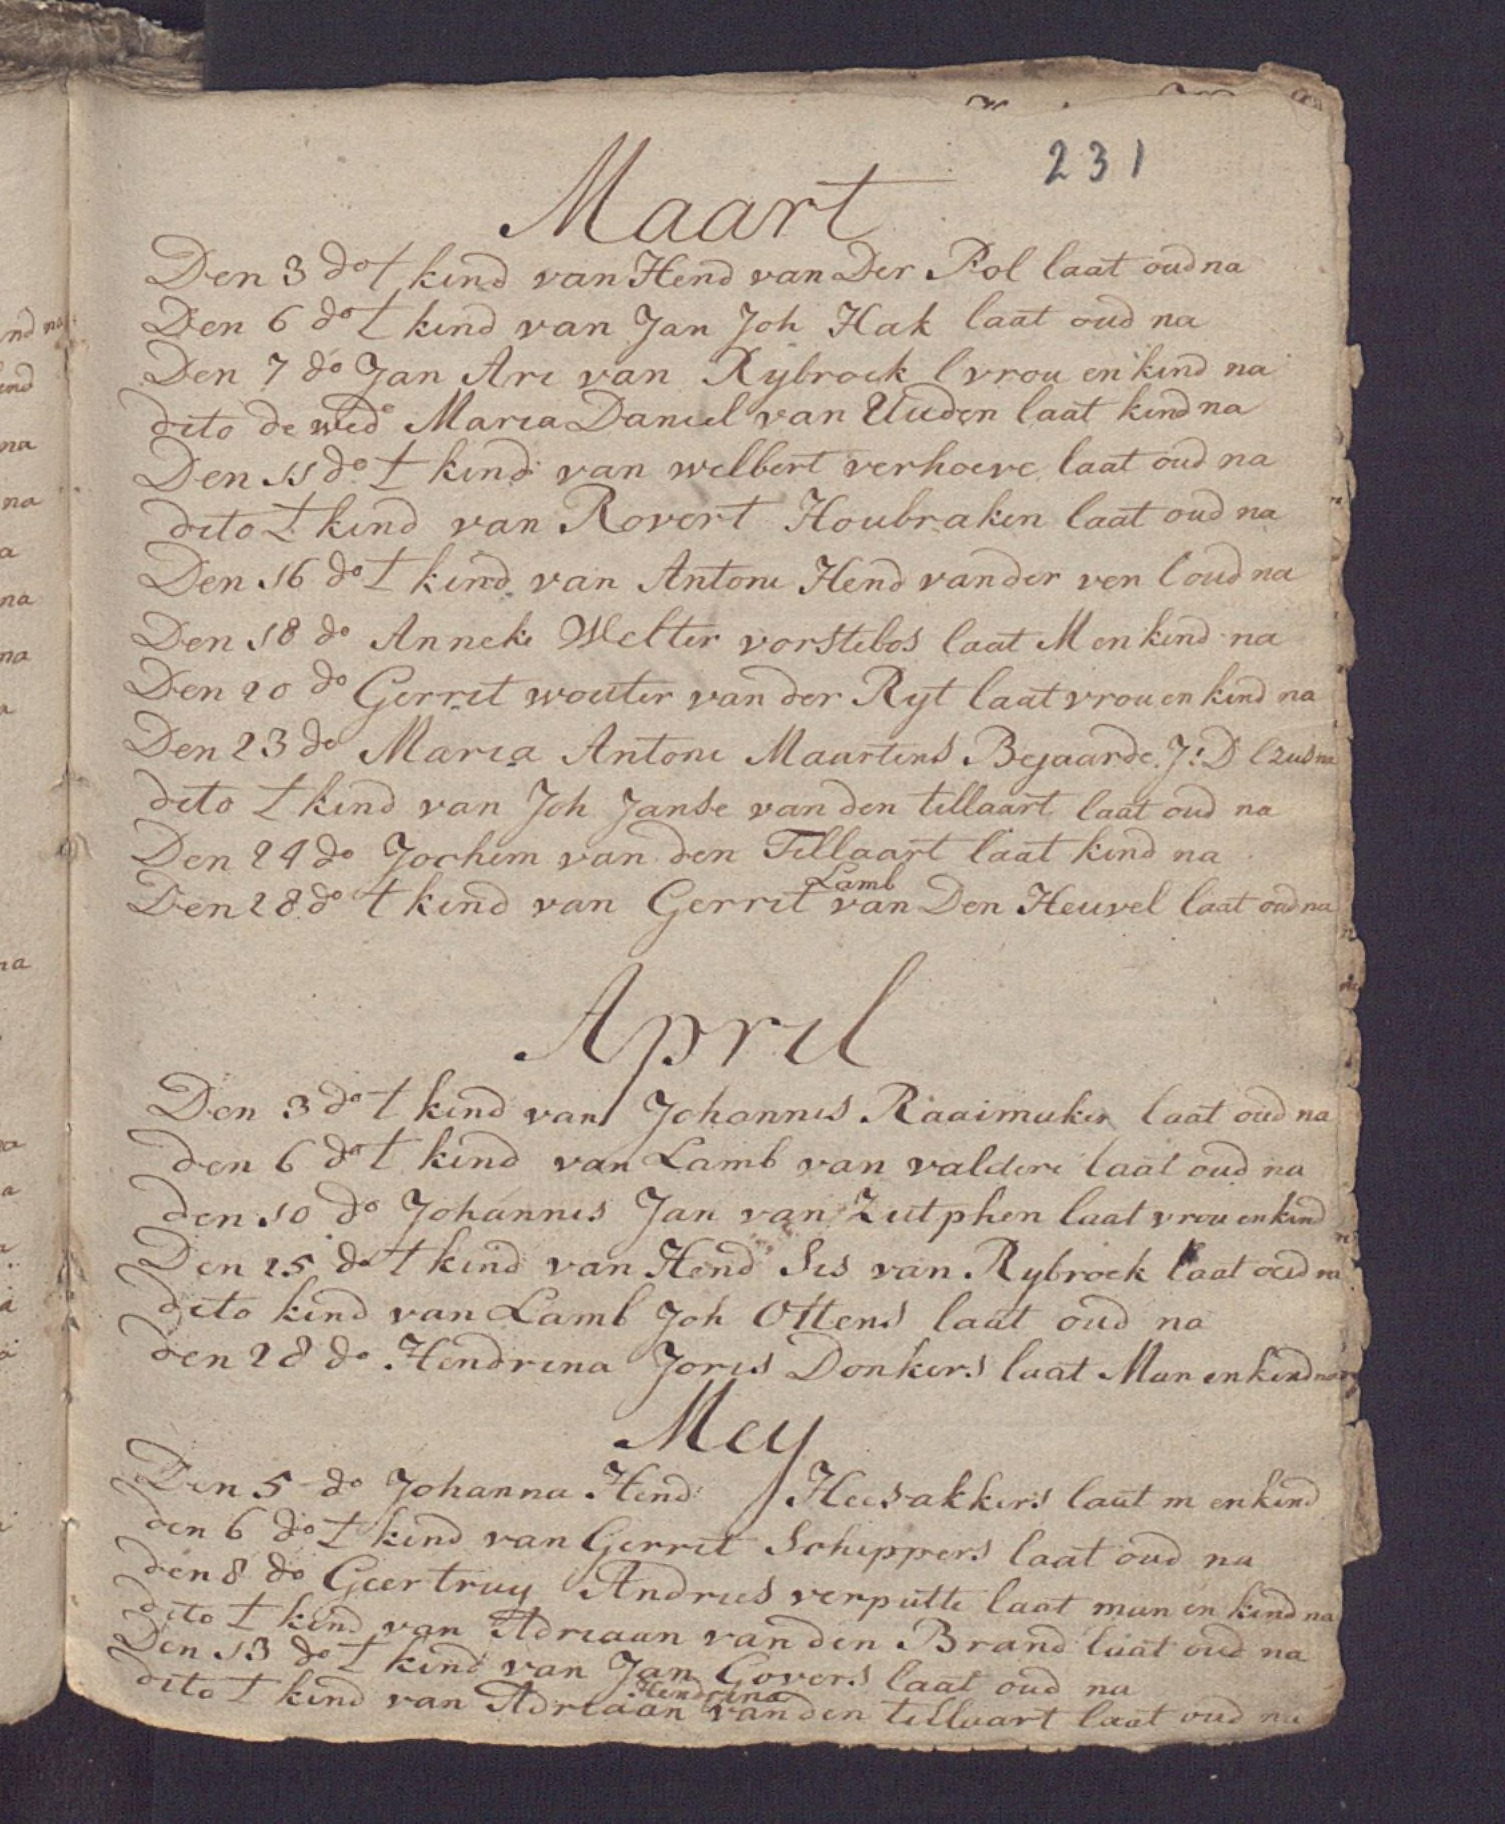 231
Maart
Den 3 do t kind van Hend van Der Pol laat oud na
Den 6 do t kind van Jan Joh Hak laat oud na
Den 7 do Jan Ari van Rijbroek l vrou en kind na
dito de wedo Maria Daniel van Uuden laat kind na
Den 11 do t kind van welbert verhoeve laat oud na
dito t kind van Rovert Houbraken laat oud na
Den 16 do t kind van Antoni Hend van der ven l oud na
Den 18 do Anneke Welter vorstebos laat M en kind na
Den 20 do Gerrit wouter van der Rijt laat vrou en kind na
Den 23 do Maria Antoni Maartens Bejaarde J: D l zus na
dito t kind van Joh Janse van den tillaart laat oud na
Den 24 do Jochem van den Tillaart laat kind na
Den 28 do t kind van Gerrit Lamb van Den Heuvel laat oud na
April
Den 3 do t kind van Johannis Raaimaker laat oud na
den 6 do t kind van Lamb van valdere laat oud na
den 10 do Johannis Jan van Zutphen laat vrou en kind
Den 25 do t kind van Hend Sis van Rybroek laat oud na
dito kind van Lamb Joh Ottens laat oud na
den 28 do Hendrina Joris Donkers laat Man en kind na
Mey
Den 5 do Johanna Hend Heesakkers laat m en kind
den 6 do t kind van Gerrit Schippers laat oud na
den 8 do Geertruy Andries verputte laat man en kind na
dito t kind van Adriaan van den Brand laat oud na
Den 13 do t kind van Jan Govers laat oud na
dito t kind van Adriaan Hendrina van den tillaart laat oud na